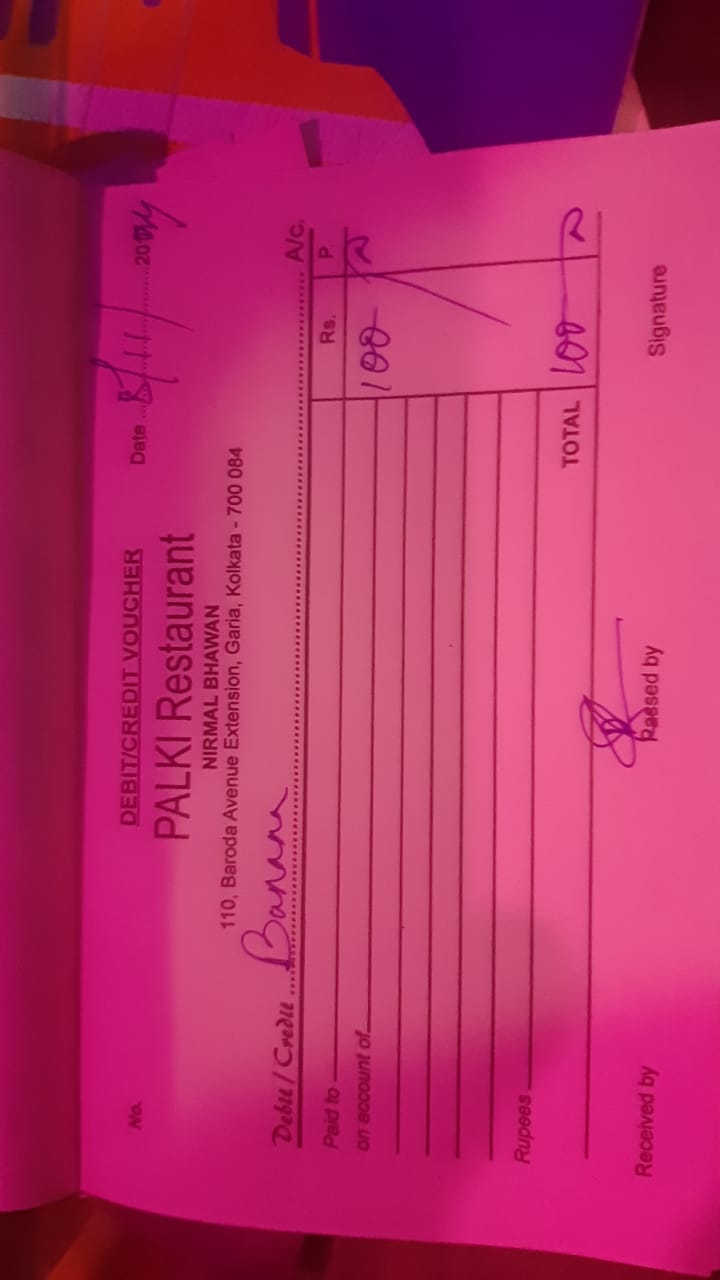 No.
DEBIT/CREDIT VOUCHER
Date 8/11/2024
PALKI Restaurant
NIRMAL BHAWAN
110, Baroda Avenue Extension, Garia, Kolkata - 700 084
Debit / Credit Banana A/c.
Rs. P.
Paid to
100
on account of
Rupees
TOTAL 100
Received by Passed by Signature